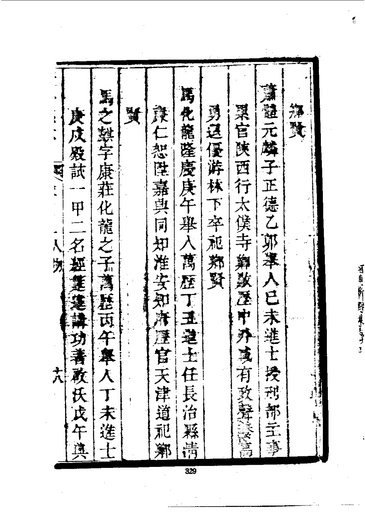 鄉賢
蕭體元麟子正德乙卯舉人己未進士授刑部主事
累官陝西行太僕寺卿敭歷中外咸有政聲
勇退優游林下卒祀鄉賢
馬化龍隆慶庚午舉人萬歷丁丑進士任長治縣清
仁恕陞嘉興同知淮安知府歷官天津道祀鄉
賢
馬之騏字康莊化龍之子萬歷丙午舉人丁未進士
庚戌殿試一甲二名經筵進講功著啟沃戊午典
人物
十八
329